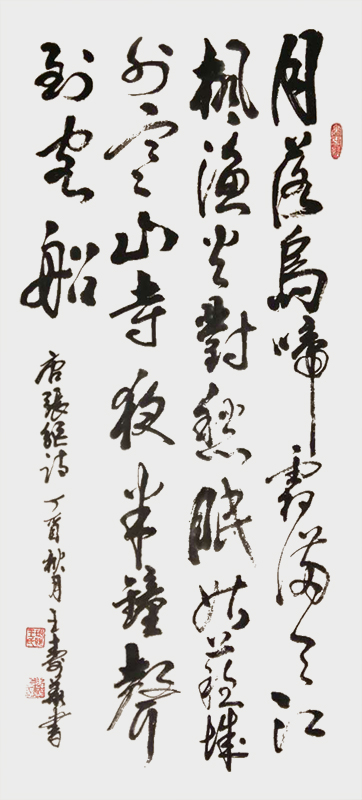 月落烏啼霜滿天江
楓漁火對愁眠姑蘇城
外寒山寺夜半鐘聲
到客船
唐張繼詩丁酉秋月王壽書